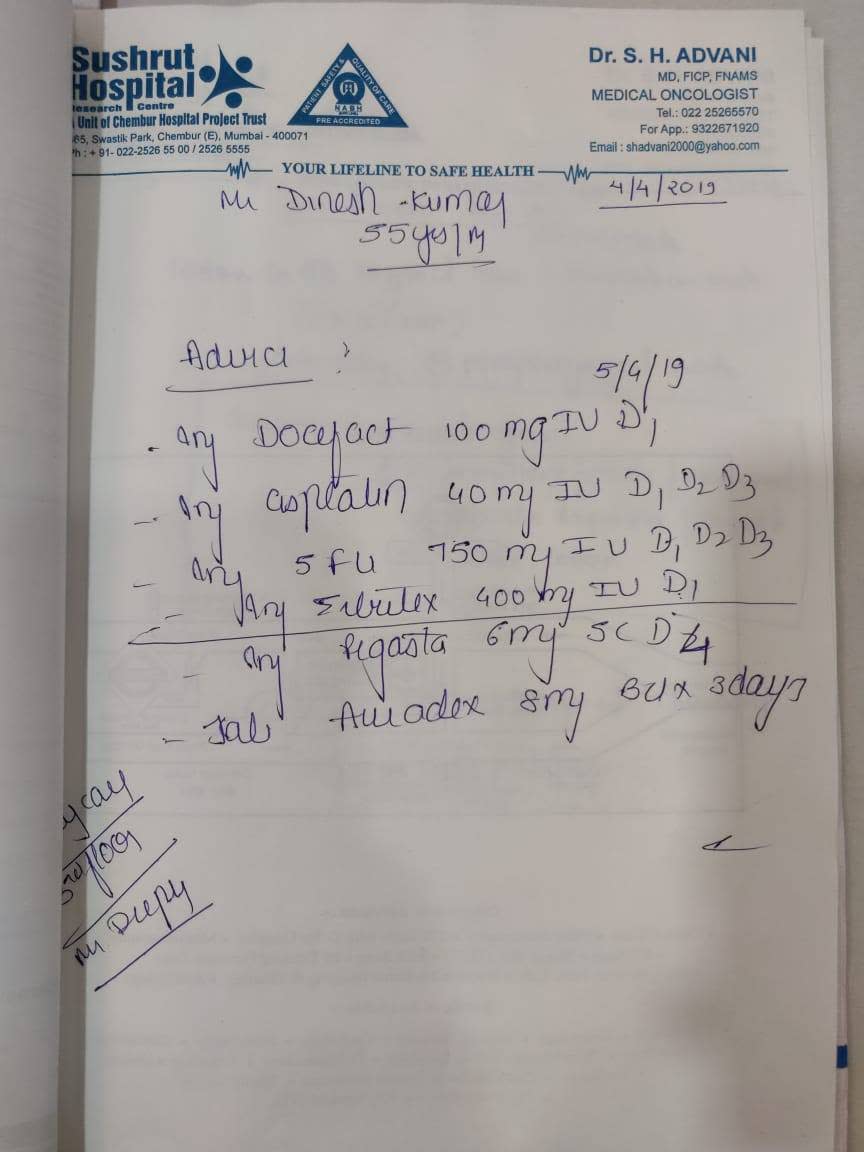 Sushrut
Hospital
Research Centre
Unit of Chembur Hospital Project Trust
365, Swastik Park, Chembur (E), Mumbai - 400071
Ph : + 91- 022-2526 55 00 / 2526 5555
PATIENT SAFETY & QUALITY OF CARE
NABH
PRE ACCREDITED
Dr. S. H. ADVANI
MD, FICP, FNAMS
MEDICAL ONCOLOGIST
Tel.: 022 25265570
For App.: 9322671920
Email : shadvani2000@yahoo.com
YOUR LIFELINE TO SAFE HEALTH
4/4/2019
Mr Dinesh Kumar
55yrs/M
Advice :
5/4/19
- Inj Docefact 100 mg IV D1
- Inj Cisplatin 40mg IV D1 D2 D3
- Inj 5FU 750 mg IV D1 D2 D3
- Inj Erbitux 400mg IV D1
- Inj Pegasta 6mg SC D4
- Tab 8mg x 3days
3rd floor
Mr